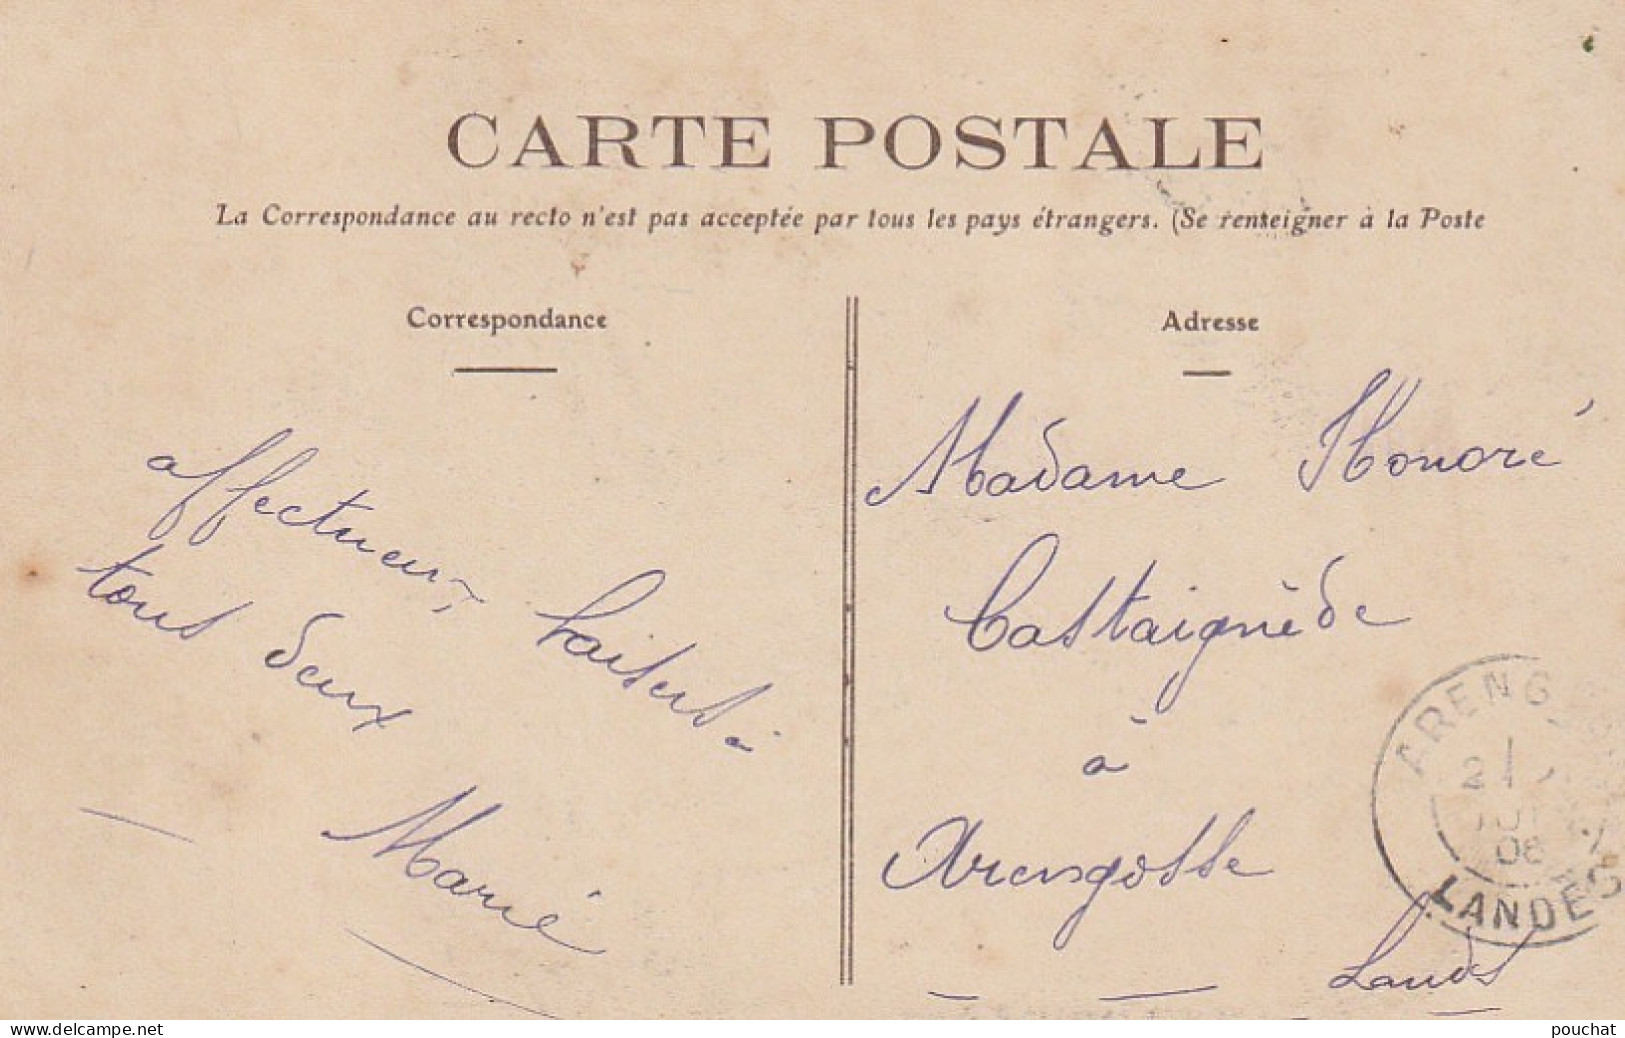 CARTE POSTALE
La Correspondance au recto n'est pas acceptée par tous les pays étrangers. (Se renseigner à la Poste
Correspondance
affectueux baisers à
tous deux
Marie
Adresse
Madame Honoré
Castaignède
à
Arengosse
Landes
ARENG
21
08
LANDES
delcampe.net
pouchat